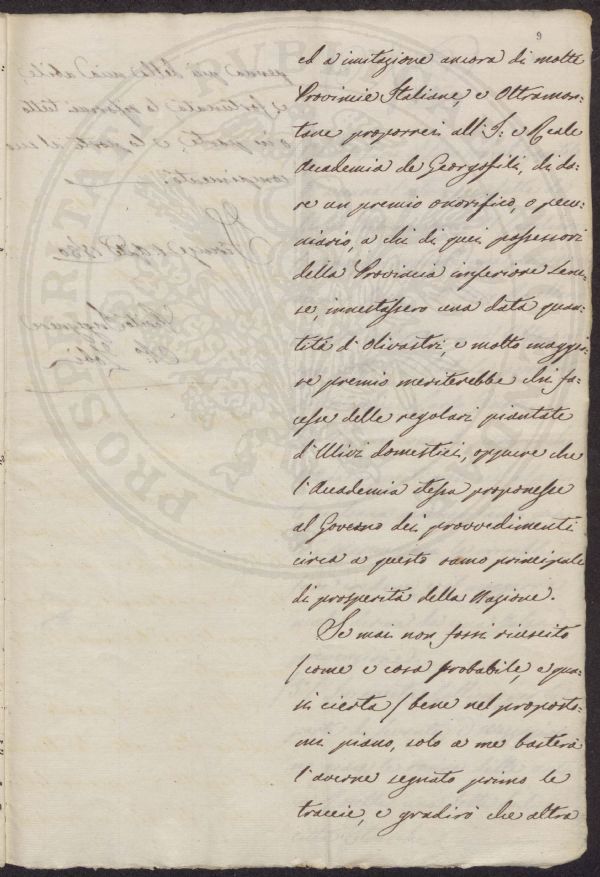 9
ed a imitazione ancora di molte
Provincie Italiane, e Oltramon=
tane proporrei all' I: e Reale
Accademia de Georgofili, di da=
re un premio onorifico, o pecu=
niario, a chi di quei possessori
della Provincia inferiore Sene=
se, innestassero una data quan=
tità d'Olivastri, e molto maggio=
re premio meriterebbe chi fa=
cesse delle regolari piantate
d'Ulivi domestici, oppure che
l'Accademia stessa proponesse
al Governo dei provvedimenti
circa a questo ramo principale
di prosperità della Nazione.
Se mai non fossi riuscito
/ come e cosa probabile, e qua=
si cierta / bene nel propost=
mi piano, solo a me basterà
l'averne segnato primo le
traccie, e gradirò che altra
PROSPERITATI PUBLICAE